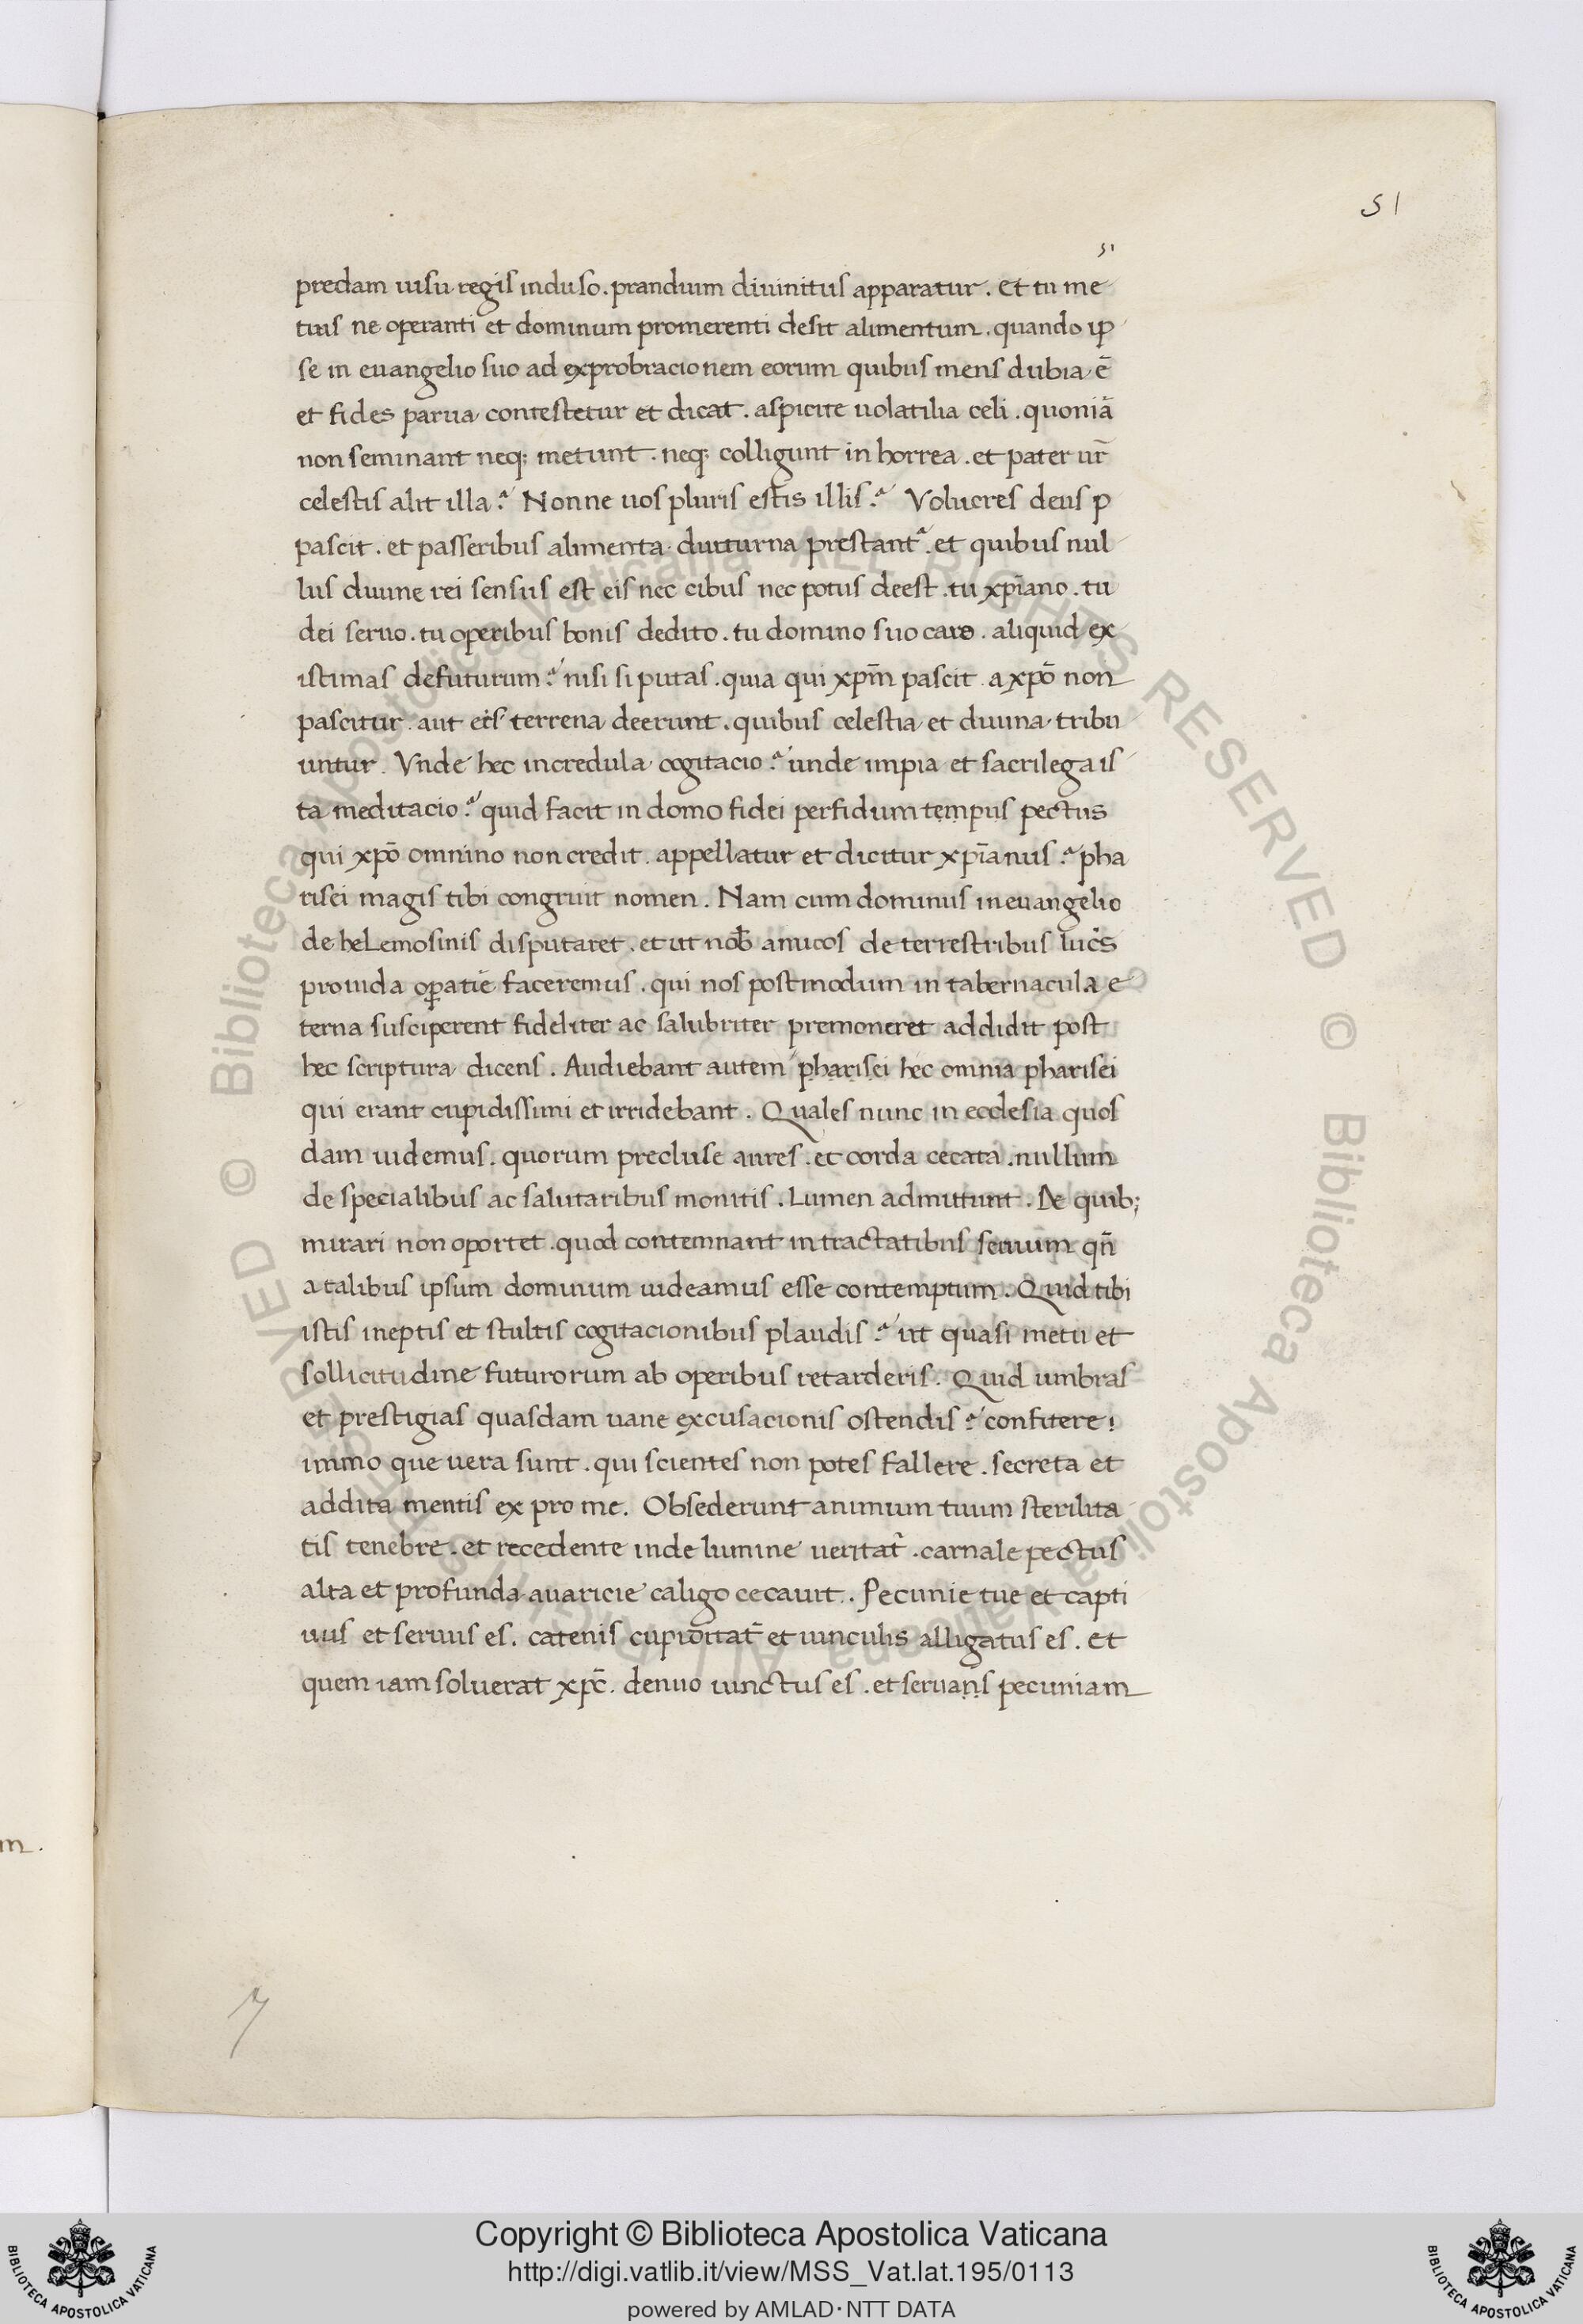 51
51
predam uisu regis induso. prandium diuinitus apparatur. et tu me
tuis ne operanti et dominum promerenti desit alimentum. quando ip
se in euangelio suo ad exprobracionem eorum quibus mens dubia ē
et fides parua contestetur et dicat. aspicite uolatilia celi. quoniā
non seminant neq; metunt. neq; colligunt in horrea. et pater ur̄
celestis alit illa? Nonne uos pluris estis illis? Volucres deus p
pascit. et passeribus alimenta diuturna prestant. et quibus nul
lus diuine rei sensus est eis nec cibus nec potus deest. tu xp̄iano. tu
dei seruo. tu operibus bonis dedito. tu domino suo caro. aliquid ex
istimas defuturum? nisi si putas. quia qui xpm̄ pascit a xpō non
pascitur. aut eis terrena deerunt. quibus celestia et diuina tribu
untur. Vnde hec incredula cogitacio? unde impia et sacrilega is
ta meditacio? quid facit in domo fidei perfidum tempus pectus
qui xpō omnino non credit. appellatur et dicitur xp̄ianus? pha
risei magis tibi congruit nomen. Nam cum dominus in euangelio
de helemosinis disputaret. et ut nob̄ amicos de terrestribus lucs
prouida oꝑatiē faceremus. qui nos postmodum in tabernacula e
terna susciperent fideliter ac salubriter premoneret addidit post
hec scriptura dicens. Audiebant autem pharisei hec omnia pharisei
qui erant cupidissimi et irridebant. Quales nunc in ecclesia quos
dam uidemus. quorum precluse aures. et corda cecata. nullum
de specialibus ac salutaribus monitis. Lumen admittunt. De quib;
mirari non oportet. quod contemnant in tractatibus seruum qn̄
a talibus ipsum dominum uideamus esse contemptum. Quid tibi
istis ineptis et stultis cogitacionibus plaudis? ut quasi metu et
sollicitudine futurorum ab operibus retarderis. Quid umbras
et prestigias quasdam uane excusacionis ostendis? confitere!
immo que uera sunt. qui scientes non potes fallere. secreta et
addita mentis ex pro me. Obsederunt animum tuum sterilita
tis tenebre. et recedente inde lumine ueritat̄. carnale pectus
alta et profunda auaricie caligo cecauit. Pecunie tue et capti
uus et seruus es. catenis cupiditat̄ et uinculis alligatus es. et
quem iam soluerat xpc̄. denuo uinctus es. et seruans pecuniam
m.
7
© Biblioteca Apostolica Vaticana ALL RIGHTS RESERVED © Biblioteca Apostolica Vaticana ALL RIGHTS RESERVED
Copyright © Biblioteca Apostolica Vaticana
http://digi.vatlib.it/view/MSS_Vat.lat.195/0113
powered by AMLAD·NTT DATA
BIBLIOTECA APOSTOLICA VATICANA
BIBLIOTECA APOSTOLICA VATICANA